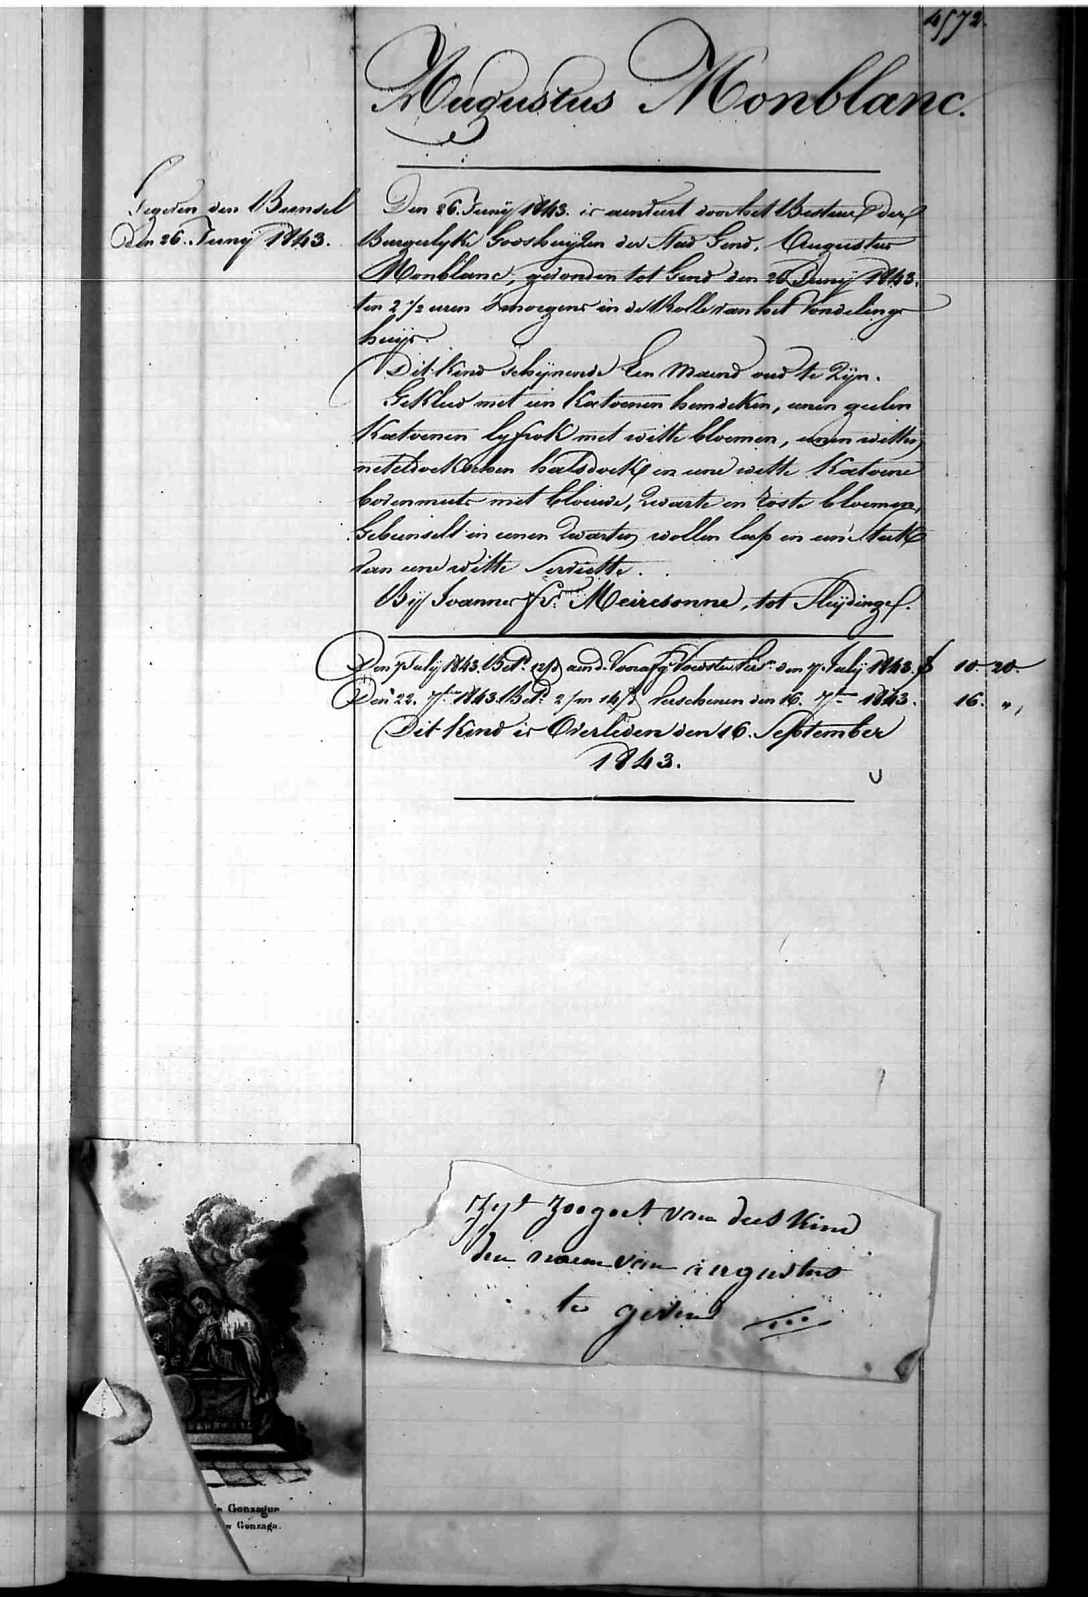 4572.
Augustus Monblanc.
Gegeven den Bunsel
den 26. Junij 1843.
Den 26. Junij 1843. is aenveert door het Bestuer der
Burgerlyke Godshuijzen der Stad Gend, Augustus
Monblanc, gevonden tot Gend den 26 Junij 1843.
ten 2 1/2 uren 's morgens in de Rolle van het Vondelings
huijs.
Dit kind schijnende Een Maend oud te Zijn.
Gekleed met een Katoenen hemdeken, eenen geelen
Katoenen lyfrok met witte bloemen, eenen witten
neteldoekschen halsdoek en eene witte Katoene
bovenmuts met blouwe, Zwarte en roste bloemen,
Gebunselt in eenen Zwarten wollen lap en een stuk
van eene witte Serviette.
Bij Joannes Fr. Meiresonne, tot Sleydinge.
Den 7 July 1843. Betd. den 7 Julij 1843. f 10. 20.
Den 22. 7bre 1843. Betd. 2/m 14/d Verschenen den 16. 7bre 1843. 16. "
Dit kind is Overleden den 16. September
1843.
Zyt zoo goet van dees kind
den naem van augustus
te geven
Gonzague
Gonzaga.